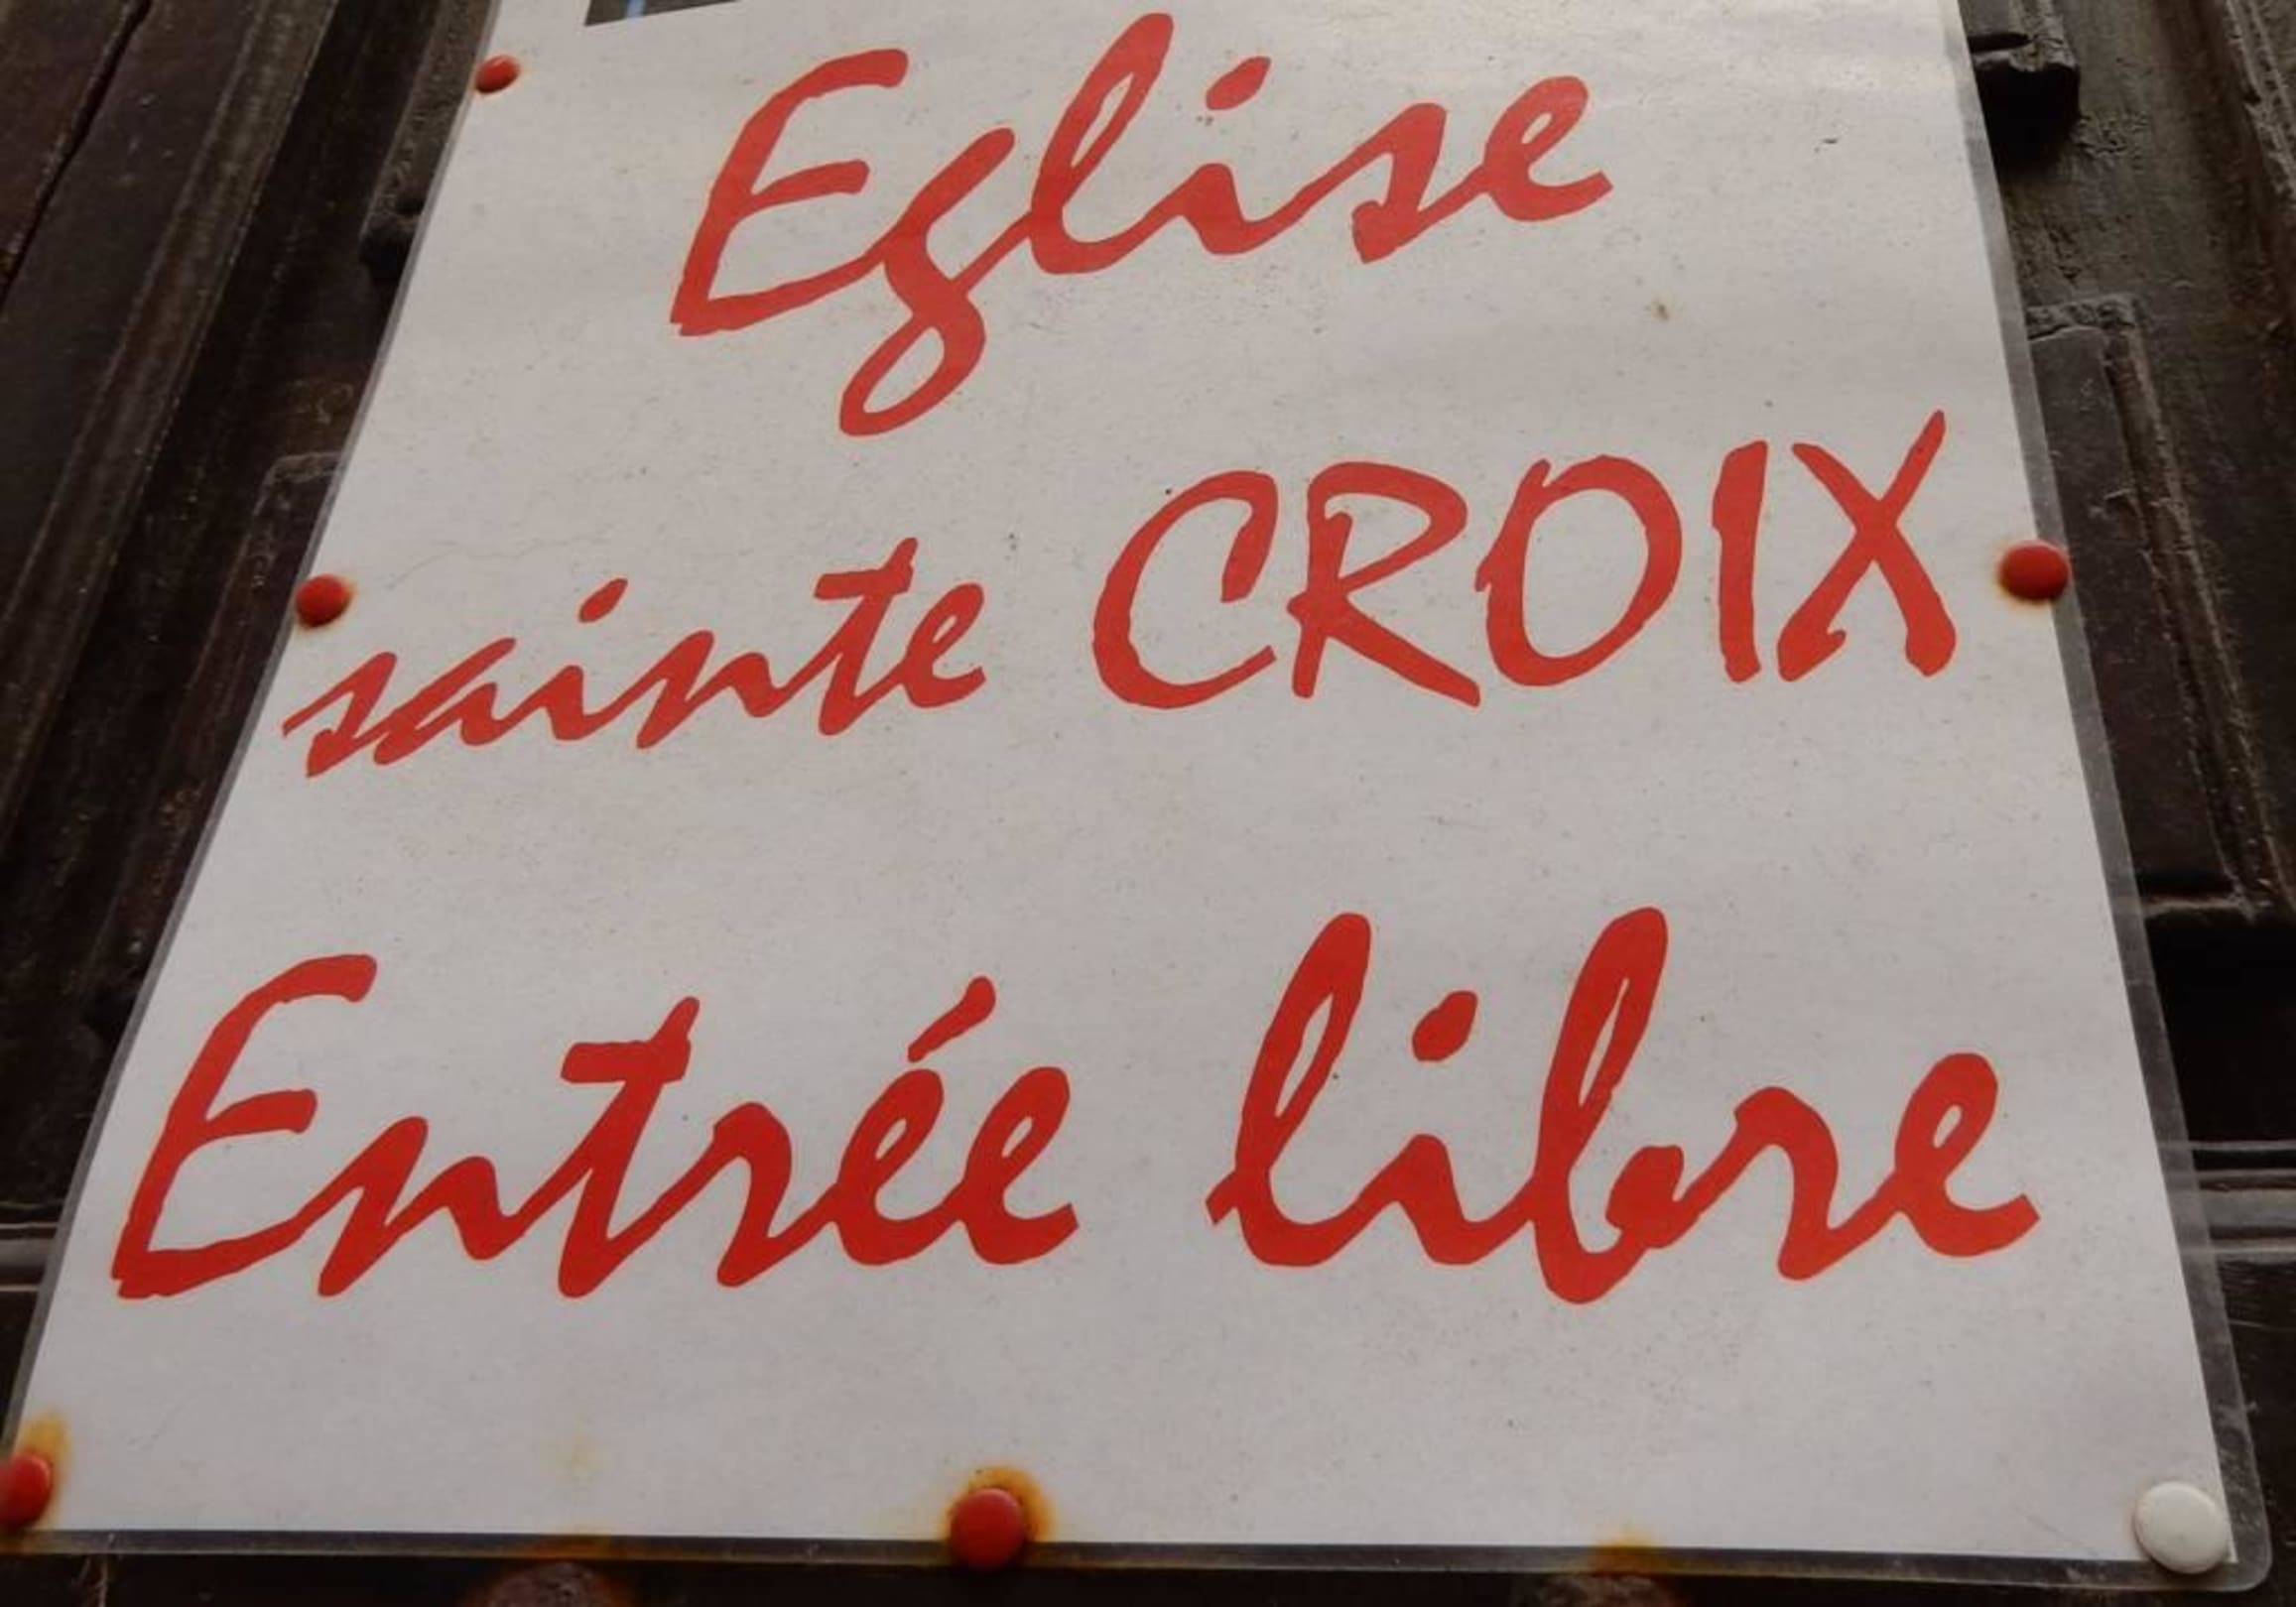 Eglise
sainte CROIX
Entrée libre